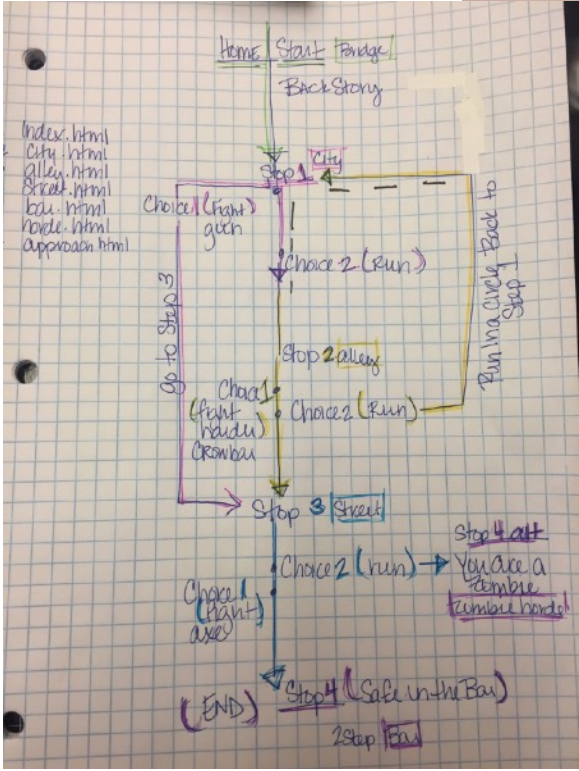 Home Start Bridge
BackStory
index.html
city.html
alley.html
street.html
bar.html
horde.html
approach.html
Stop 1 City
Choice 1 (Fight)
gun
Choice 2 (Run)
go to Stop 3
Run in a circle Back to
Stop 1
Stop 2 alley
Choice 1
(fight
harder)
Crowbar
Choice 2 (Run)
Stop 3 Street
Choice 2 (run)
Choice 1
(fight)
axe
Stop 4 alt
You are a
zombie
zumbie horde
(END) Stop 4 (Safe in the Bar)
Bar